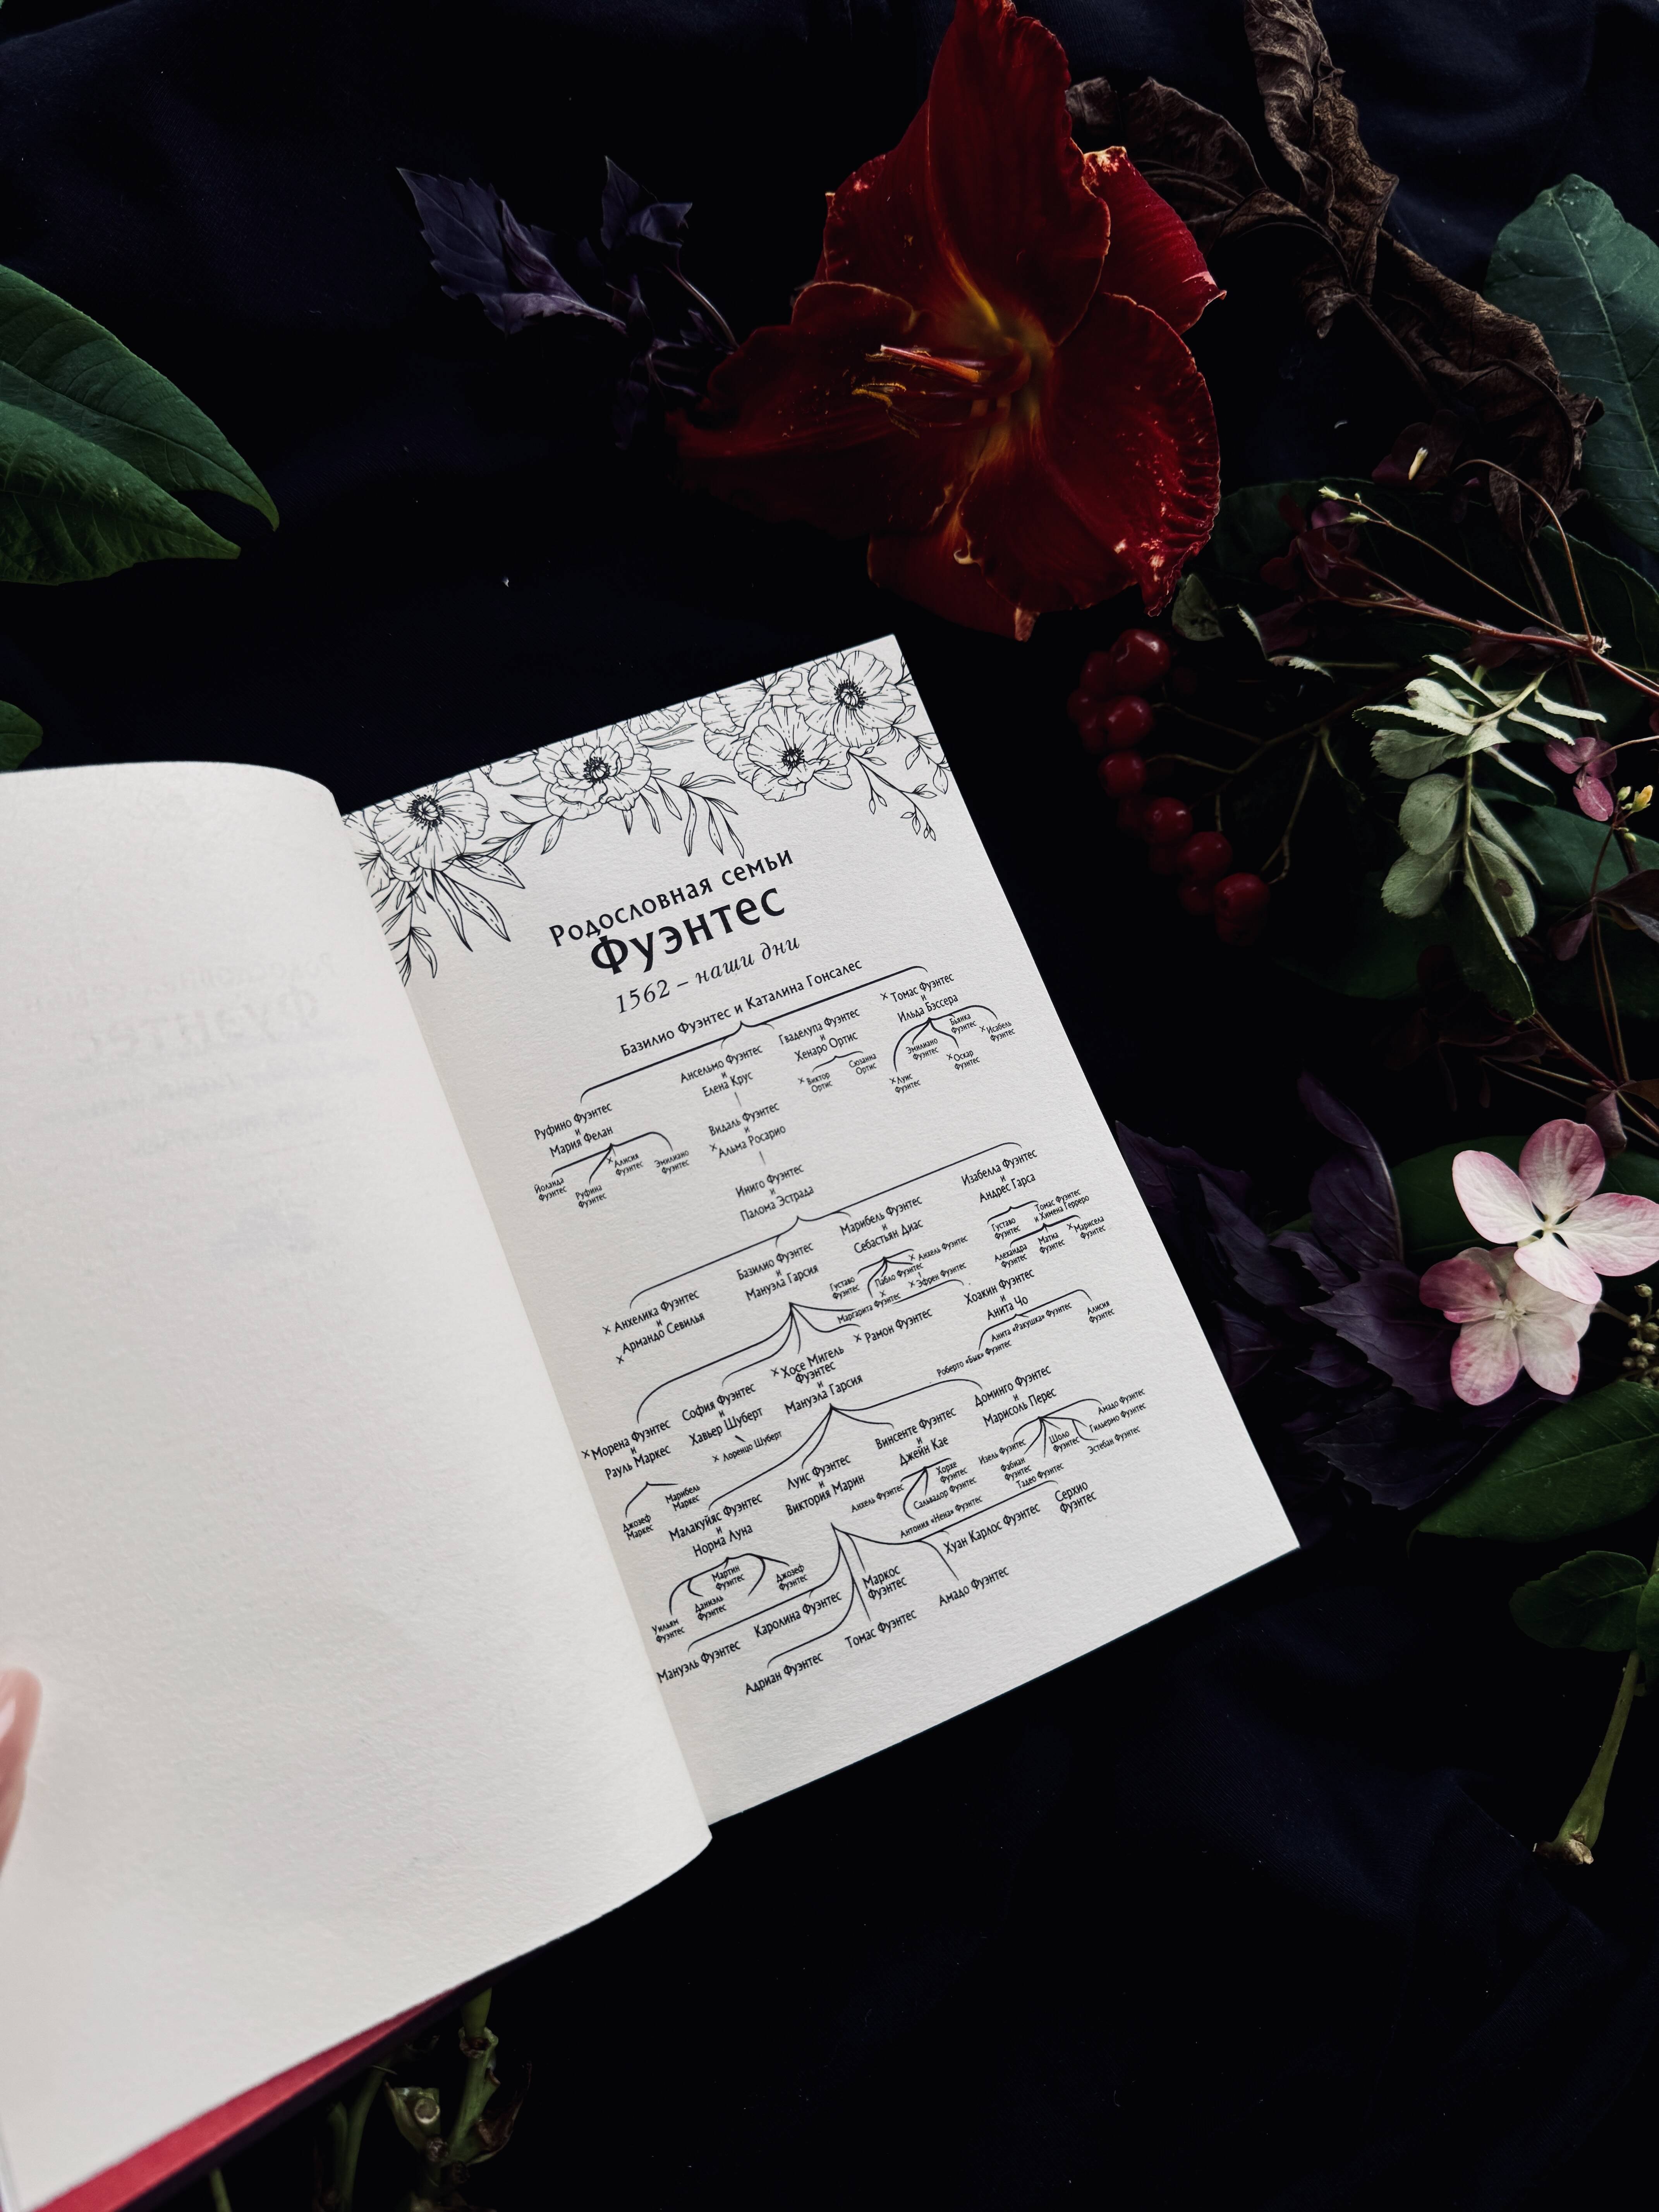 Родословная семьи
Фуэнтес
1562 – наши дни
Базилио Фуэнтес и Каталина Гонсалес
Руфино Фуэнтес
и
Мария Фелан
Йоланда
Фуэнтес
Руфина
Фуэнтес
× Алисия
Фуэнтес
Эмилиано
Фуэнтес
Ансельмо Фуэнтес
и
Елена Крус
Видаль Фуэнтес
и
× Альма Росарио
Иниго Фуэнтес
и
Палома Эстрада
Гваделупа Фуэнтес
и
Хенаро Ортис
× Виктор
Ортис
Сюзанна
Ортис
× Томас Фуэнтес
и
Ильда Бэссера
× Луис
Фуэнтес
Эмилиано
Фуэнтес
Бьянка
Фуэнтес
× Оскар
Фуэнтес
× Исабель
Фуэнтес
× Анхелика Фуэнтес
и
× Армандо Севилья
Базилио Фуэнтес
и
Мануэла Гарсия
Марибель Фуэнтес
и
Себастьян Диас
Густаво
Фуэнтес
Пабло Фуэнтес
× Анхель Фуэнтес
× Эфрен Фуэнтес
×
Маргарита Фуэнтес
Изабелла Фуэнтес
и
Андрес Гарса
Густаво
Фуэнтес
Томас Фуэнтес
и Химена Герреро
Алехандра
Фуэнтес
Матиа
Фуэнтес
× Марисела
Фуэнтес
× Морена Фуэнтес
и
Рауль Маркес
Джозеф
Маркес
Марибель
Маркес
София Фуэнтес
и
Хавьер Шуберт
× Лоренцо Шуберт
× Хосе Мигель
Фуэнтес
и
Мануэла Гарсия
× Рамон Фуэнтес
Хоакин Фуэнтес
и
Анита Чо
Роберто «Бык» Фуэнтес
Анита «Ракушка» Фуэнтес
Алисия
Фуэнтес
Малакуйяс Фуэнтес
и
Норма Луна
Уильям
Фуэнтес
Даниэль
Фуэнтес
Мартин
Фуэнтес
Джозеф
Фуэнтес
Луис Фуэнтес
и
Виктория Марин
Винсенте Фуэнтес
и
Джейн Кае
Анхель Фуэнтес
Хорхе
Фуэнтес
Сальвадор Фуэнтес
Антония «Нена» Фуэнтес
Доминго Фуэнтес
и
Марисоль Перес
Изель Фуэнтес
Фабиан
Фуэнтес
Шоло
Фуэнтес
Тадео Фуэнтес
Амадо Фуэнтес
Гильермо Фуэнтес
Эстебан Фуэнтес
Мануэль Фуэнтес
Каролина Фуэнтес
Адриан Фуэнтес
Маркос
Фуэнтес
Томас Фуэнтес
Амадо Фуэнтес
Хуан Карлос Фуэнтес
Серхио
Фуэнтес